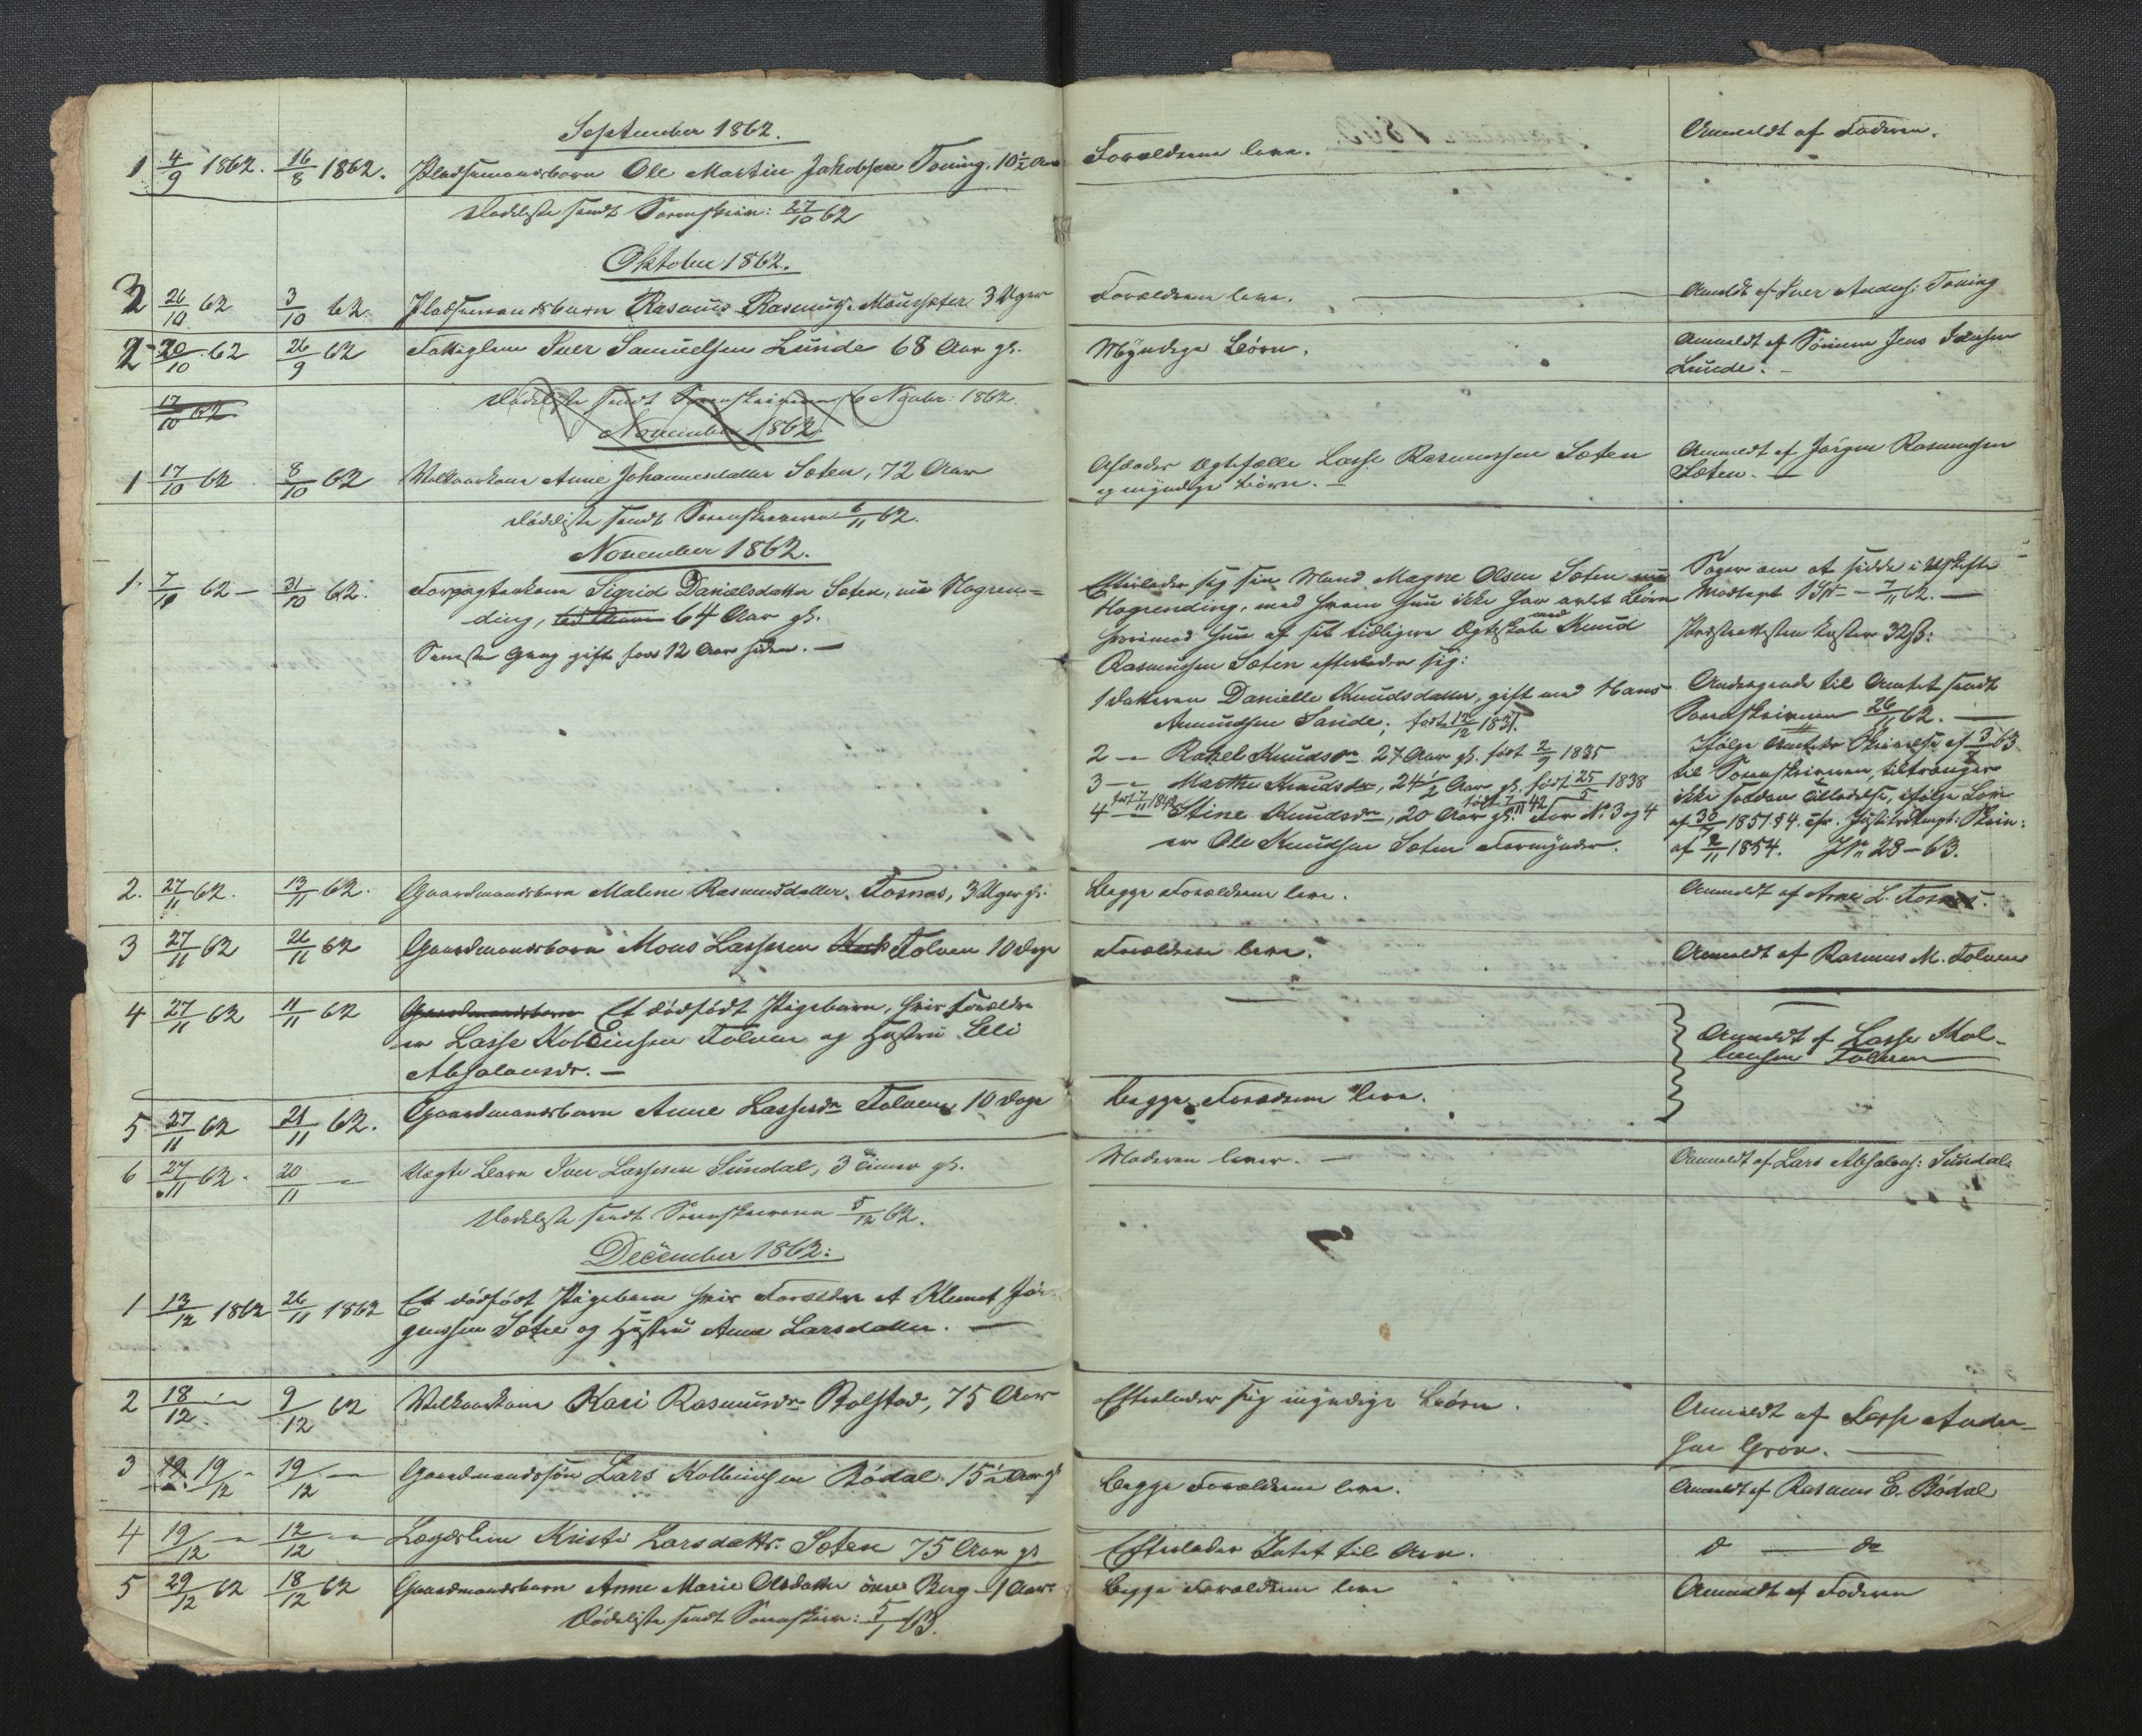 September 1862.
1 4/9 1862. 16/8 1862. Pladsemandsbarn Ole Martin Jakobsen Toning. 10 1/2 Aar
Forældrene leve.
Anmeldt af Faderen.
Dødeliste sendt Sorenskriv: 27/10 62
Oktober 1862.
3 26/10 62 3/10 62. Pladsemandsbarn Rasmus Rasmuss. Moursæter 3 Uger
Forældrene leve.
Anmeldt af Iver Anders: Toning
2 20/10 62 26/9 62 Fattiglem Iver Samuelsen Lunde 68 Aar gl.
Myndige Börn.
Anmeldt af Sönnen Jens Iversen
Lunde.
17/10 62
Dödeliste sendt Sorenskriveren 6 Novbr: 1862.
November 1862.
1 17/10 62 8/10 62 Volkaarkone Anne Johannesdatter Sæten, 72 Aar
Ægtefælle Lasse Rasmussen Sæten
og myndige Börn.
Anmeldt af Jörgen Rasmussen
Sæten.
Dödeliste sendt Sorenskriveren 6/11 62.
November 1862.
1. 7/11 62 – 31/10 62. Forpagterkone Sigrid Danielsdatter Sæten, nu Hogren=
ding, 64 Aar gl.
Seneste Gang gift for 12 Aar siden. –
Efterlader sig sin Mand Magne Olsen Sæten nu
Hogrending, med hvem hun ikke har avlet Börn
hvorimod hun af sit tidligere Ægteskab med Knud
Rasmussen Sæten efterlader sig:
1 Datteren Danielle Knudsdatter, gift med Hans
Amundsen Sande; født 12/12 1831.
2 – Rakel Knudsdr 27 Aar gl. født 2/9 1835
3 – Marthe Knudsdr, 24 1/2 Aar gl. född 25/5 1838
4 – født 7/11 1842 Stine Knudsdr, 20 Aar gl. født 7/11 42 For No 3 og 4
er Ole Knudsen Sæten Formynder.
Søger om at sidde i Uskifte
Modtaget 1 Spd – 7/11 62. –
Præsteattesten koster 32 ß:
Andragende til Amtet sendt
Sorenskriveren 26/11 62. –
Ifölge Amtets Skrivelse af 3/1 63
til Sorenskriveren, tiltrænges
ikke saadan Tilladelse, ifölge Lov
af 30/7 1851 § 4. cfr. Justitsdempt: Skriv:
af 2/11 1854. JN. 28–63.
2. 27/11 62. 13/11 62. Gaardmandsbarn Malene Rasmusdatter Fosnæs, 3 Uger gl.
Begge Forældrene leve.
Anmeldt af Arne L. Fosnæs.
3 27/11 62 26/11 62 Gaardmandsbarn Mons Lassesen Folven 10 Dage
Forældrene leve.
Anmeldt af Rasmus M. Folven
4 27/11 62 11/11 62 Gaardmandsbarn Et dödfödt Pigebarn, hvis Forældre
er Lasse Kolbeinsen Folven og Hustru Eli
Absalonsdr. –
Anmeldt af Lasse Kol-
beinsen Folven
5 27/11 62 21/11 62. Gaardmandsbarn Anne Lassesdr Folven 10 Dage
Begge Forældrene leve.
6 27/11 62. 20/11 – Uægte Barn Iver Lassesen Sundal, 3 Timer gl.
Moderen lever. –
Anmeldt af Lars Absalons: Sundal.
Dödeliste sendt Sorenskriveren 5/12 62.
December 1862:
1 13/12 1862 26/11 1862 Et dödfödt Pigebarn hvis Forældre er Klemet Jör-
gensen Sætre og Hustru Anne Larsdatter. –
2 18/12 – 9/12 62 Volkaarkone Kari Rasmusdr Bolstad, 75 Aar
Efterlader sig myndige Börn.
Anmeldt af Lasse Ander-
sen Grov. –
3 19/12 – 19/12 – Gaardmandssön Lars Kolbeinsen Bödal 15 1/2 Aar gl
Begge Forældrene leve.
Anmeldt af Rasmus E. Bödal
4 19/12 – 12/12 – Lægdslem Kristi Larsdatter Sæten 75 Aar gl
Efterlader Intet til Arv.
do — do
5 29/12 62 18/12 62 Gaardmandsbarn Anne Marie Olsdatter övre Berg – 1 Aar
Begge Forældrene leve
Anmeldt af Faderen
Dödeliste sendt Sorenskriv: 5/1 63.